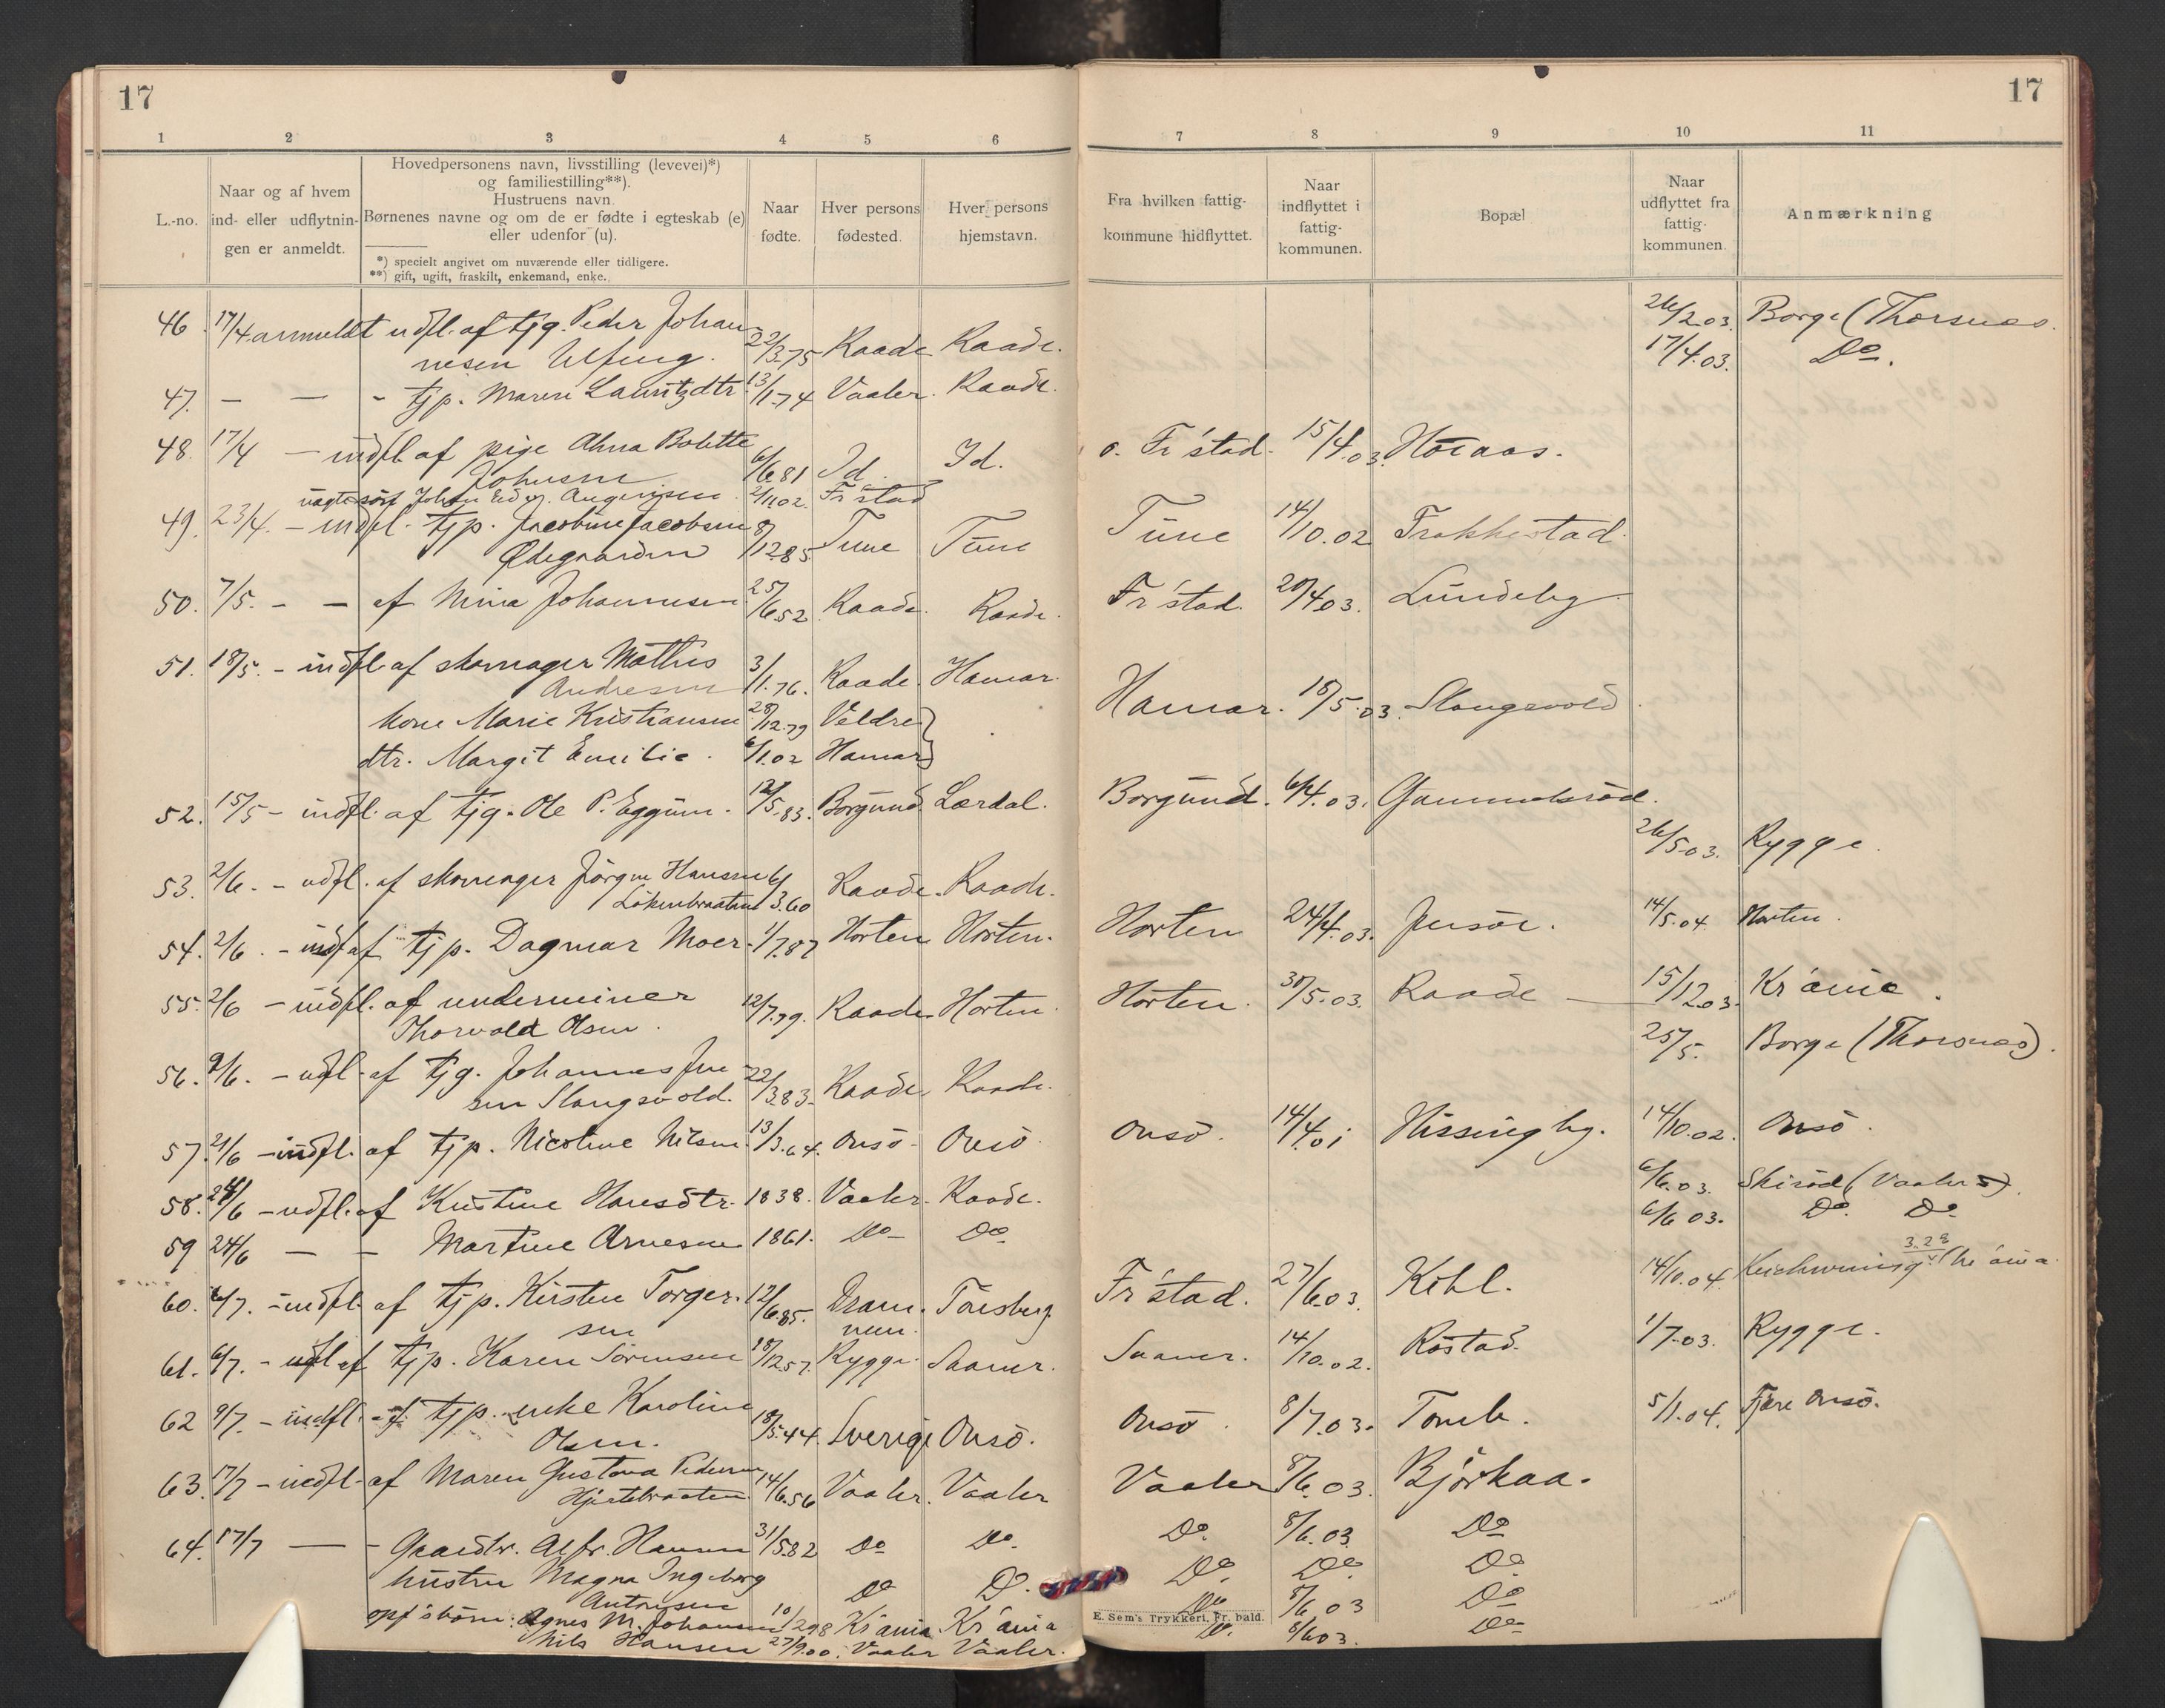 17
17
1 2 3 4 5 6 7 8 9 10 11
L.-no.
Naar og af hvem
ind- eller udflytnin-
gen er anmeldt.
Hovedpersonens navn, livsstilling (levevei)*)
og familiestilling**).
Hustruens navn.
Børnenes navne og om de er fødte i egteskab (e)
eller udenfor (u).
*) specielt angivet om nuværende eller tidligere.
**) gift, ugift, fraskilt, enkemand, enke.
Naar
fødte.
Hver persons
fødested.
Hver persons
hjemstavn.
Fra hvilken fattig-
kommune hidflyttet.
Naar
indflyttet i
fattig-
kommunen.
Bopæl
Naar
udflyttet fra
fattig-
kommunen.
Anmærkning
46. 17/4 anmeldt udfl. af tjg. Peder Johan- 26/2.03. Borge (Thorsnes.
nesen 22/3.75 Raade Raade. 17/4.03. Do.
47. — — - tjp. Maren Lauritzdtr. 13/1.74 Vaaler. Raade.
48. 17/4 — indfl. af pige Bolette o. Fr'stad. 15/4.03.
Johnsen 6/6.81 Id. Id.
2/11.02. Fr'stad
49. 23/4. — indfl. tjp. Jacobine Jacobsen 8/12.85 Tune Tune Tune 14/10.02 Frokkestad.
Ødegaarden
50. 7/5. - — af Mina Johannesen 25/6.52 Raade. Raade. Fr'stad. 20/4.03. Lundeby
51. 18/5. - indfl. af skomager Mathis 3/1.76. Raade. Hamar. Hamar. 18/5.03. Slangsvold.
Andresen
kone Marie Kristiansen 28/12.79 Veldre
dtr. Margit Emilie. 6/1.02 Hamar
52. 15/5 - indfl. af tjg. Ole P. Eggum. 12/5.83. Borgund. Lærdal. Borgund. 6/4.03. Gammelsrød.
26/5.03. Rygge.
53. 2/6. - udfl. af skomager Jörgen Hansen 6/3.60 Raade. Raade.
Lökenbraaten
54. 2/6. - indf af tjp. Dagmar Moer. 1/7.87 Horten Horten. Horten 24/4.03. Jensöe. 14/5.04. Horten.
55. 2/6 - indfl. af underminer 12/7.79. Raade Horten. Horten. 30/5.03. Raade — 15/12.03. Kr'ania.
Thorvald Olsen.
25/5. Borge (Thorsnes).
56. 9/6. - udfl. af tjg. Johannes Jen- 22/3.83. Raade Raade.
sen Slangsvold.
57. 21/6 - indfl. af tjp. Nicoline Nilsen. 13/3.64. Onsö. Onsö. Onsö. 14/4.01 Hissingby. 14/10.02. Onsö.
58. 24/6 - udfl. af Kristine Hansdtr. 1838. Vaaler. Raade. 6/6.03. Skiröd (Vaaler).
59 24/6 — - Martine Arnesen 1861. Do — Do. 6/6 03. Do. Do.
60. 6/7. - indfl. af tjp. Kirsten Torger- 12/6.85. Dram- Tönsberg. Fr'stad. 27/6.03. Kihl. 14/10.04. 3.28 (Kr'ania.
sen men.
61. 6/7. - udfl af tjp. Karen Sörensen 18/12.57. Rygge. Saaner. Saaner. 14/10.02. Röstad. 1/7.03. Rygge.
62 9/7. - indfl. af tjp. enke Karoline 18/5.44. Sverige Onsö. Onsö. 8/7.03. Tomb. 5/1.04. Onsö.
Olsen.
63. 17/7 - indfl. af Maren Gustava Pedersen 14/6.56 Vaaler. Vaaler Vaaler 8/6.03. Björkaa.
Hjertebraaten.
64. 17/7 — - Gaardbr. Alfr. Hansen 31/5.82 Do Do. Do. 8/6.03. Do
hustru Magna Ingeborg Do Do. Do. Do. Do.
Antonsen Do 8/6.03 Do
opf'sbörn: Agnes M. Johansen 10/2.98 Kr'ania. Kr'ania Do. 8/6.03. Do
Nils Hansen 27/9.00. Vaaler Vaaler.
E. Sem's Trykkeri, Fr.hald.